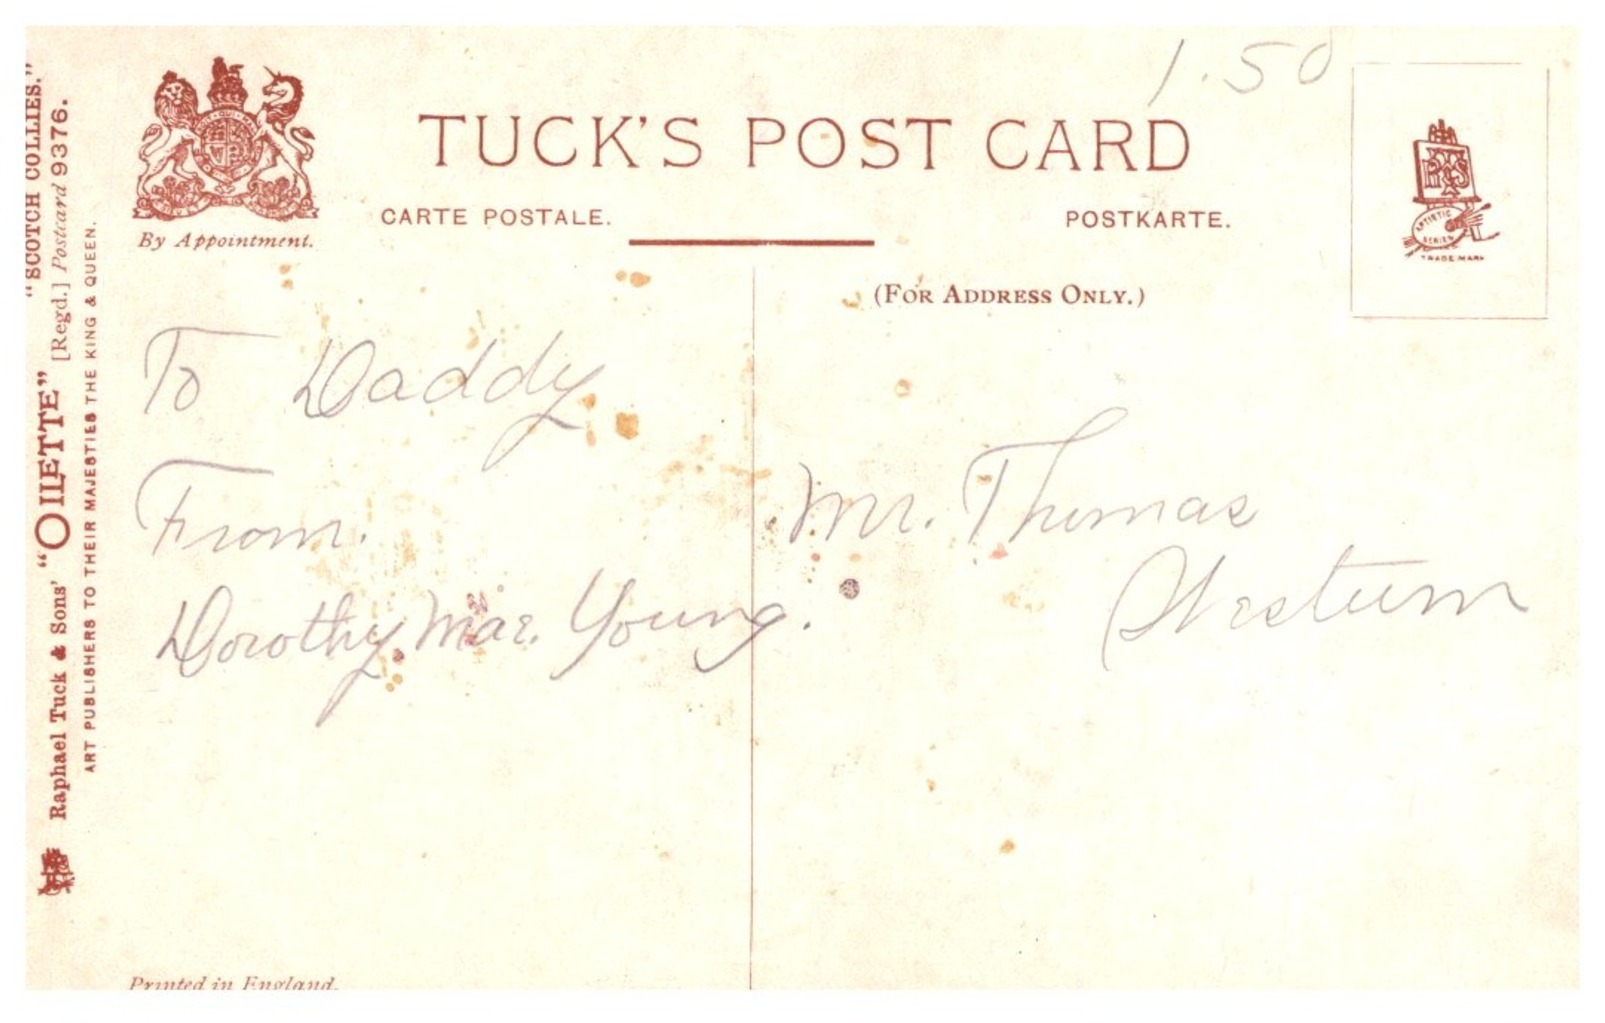 1.50
TUCK'S POST CARD
CARTE POSTALE.
POSTKARTE.
By Appointment.
(FOR ADDRESS ONLY.)
RTS
ARTISTIC
SERIES
TRADE MARK
"SCOTCH COLLIES."
Raphael Tuck & Sons' "OILETTE" [Regd.] Postcard 9376.
ART PUBLISHERS TO THEIR MAJESTIES THE KING & QUEEN.
To Daddy
From.
Dorothy Mae. Young.
Mr. Thomas
Printed in England.